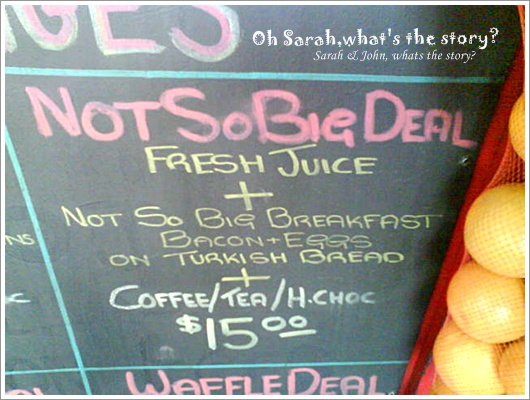 GES
Oh Sarah,what's the story?
Sarah & John, whats the story?
NOT SO BIG DEAL
FRESH JUICE
+
NOT SO BIG BREAKFAST
BACON+EGGS
ON TURKISH BREAD
+
COFFEE/TEA/H.CHOC
$15.00
WAFFLE DEAL